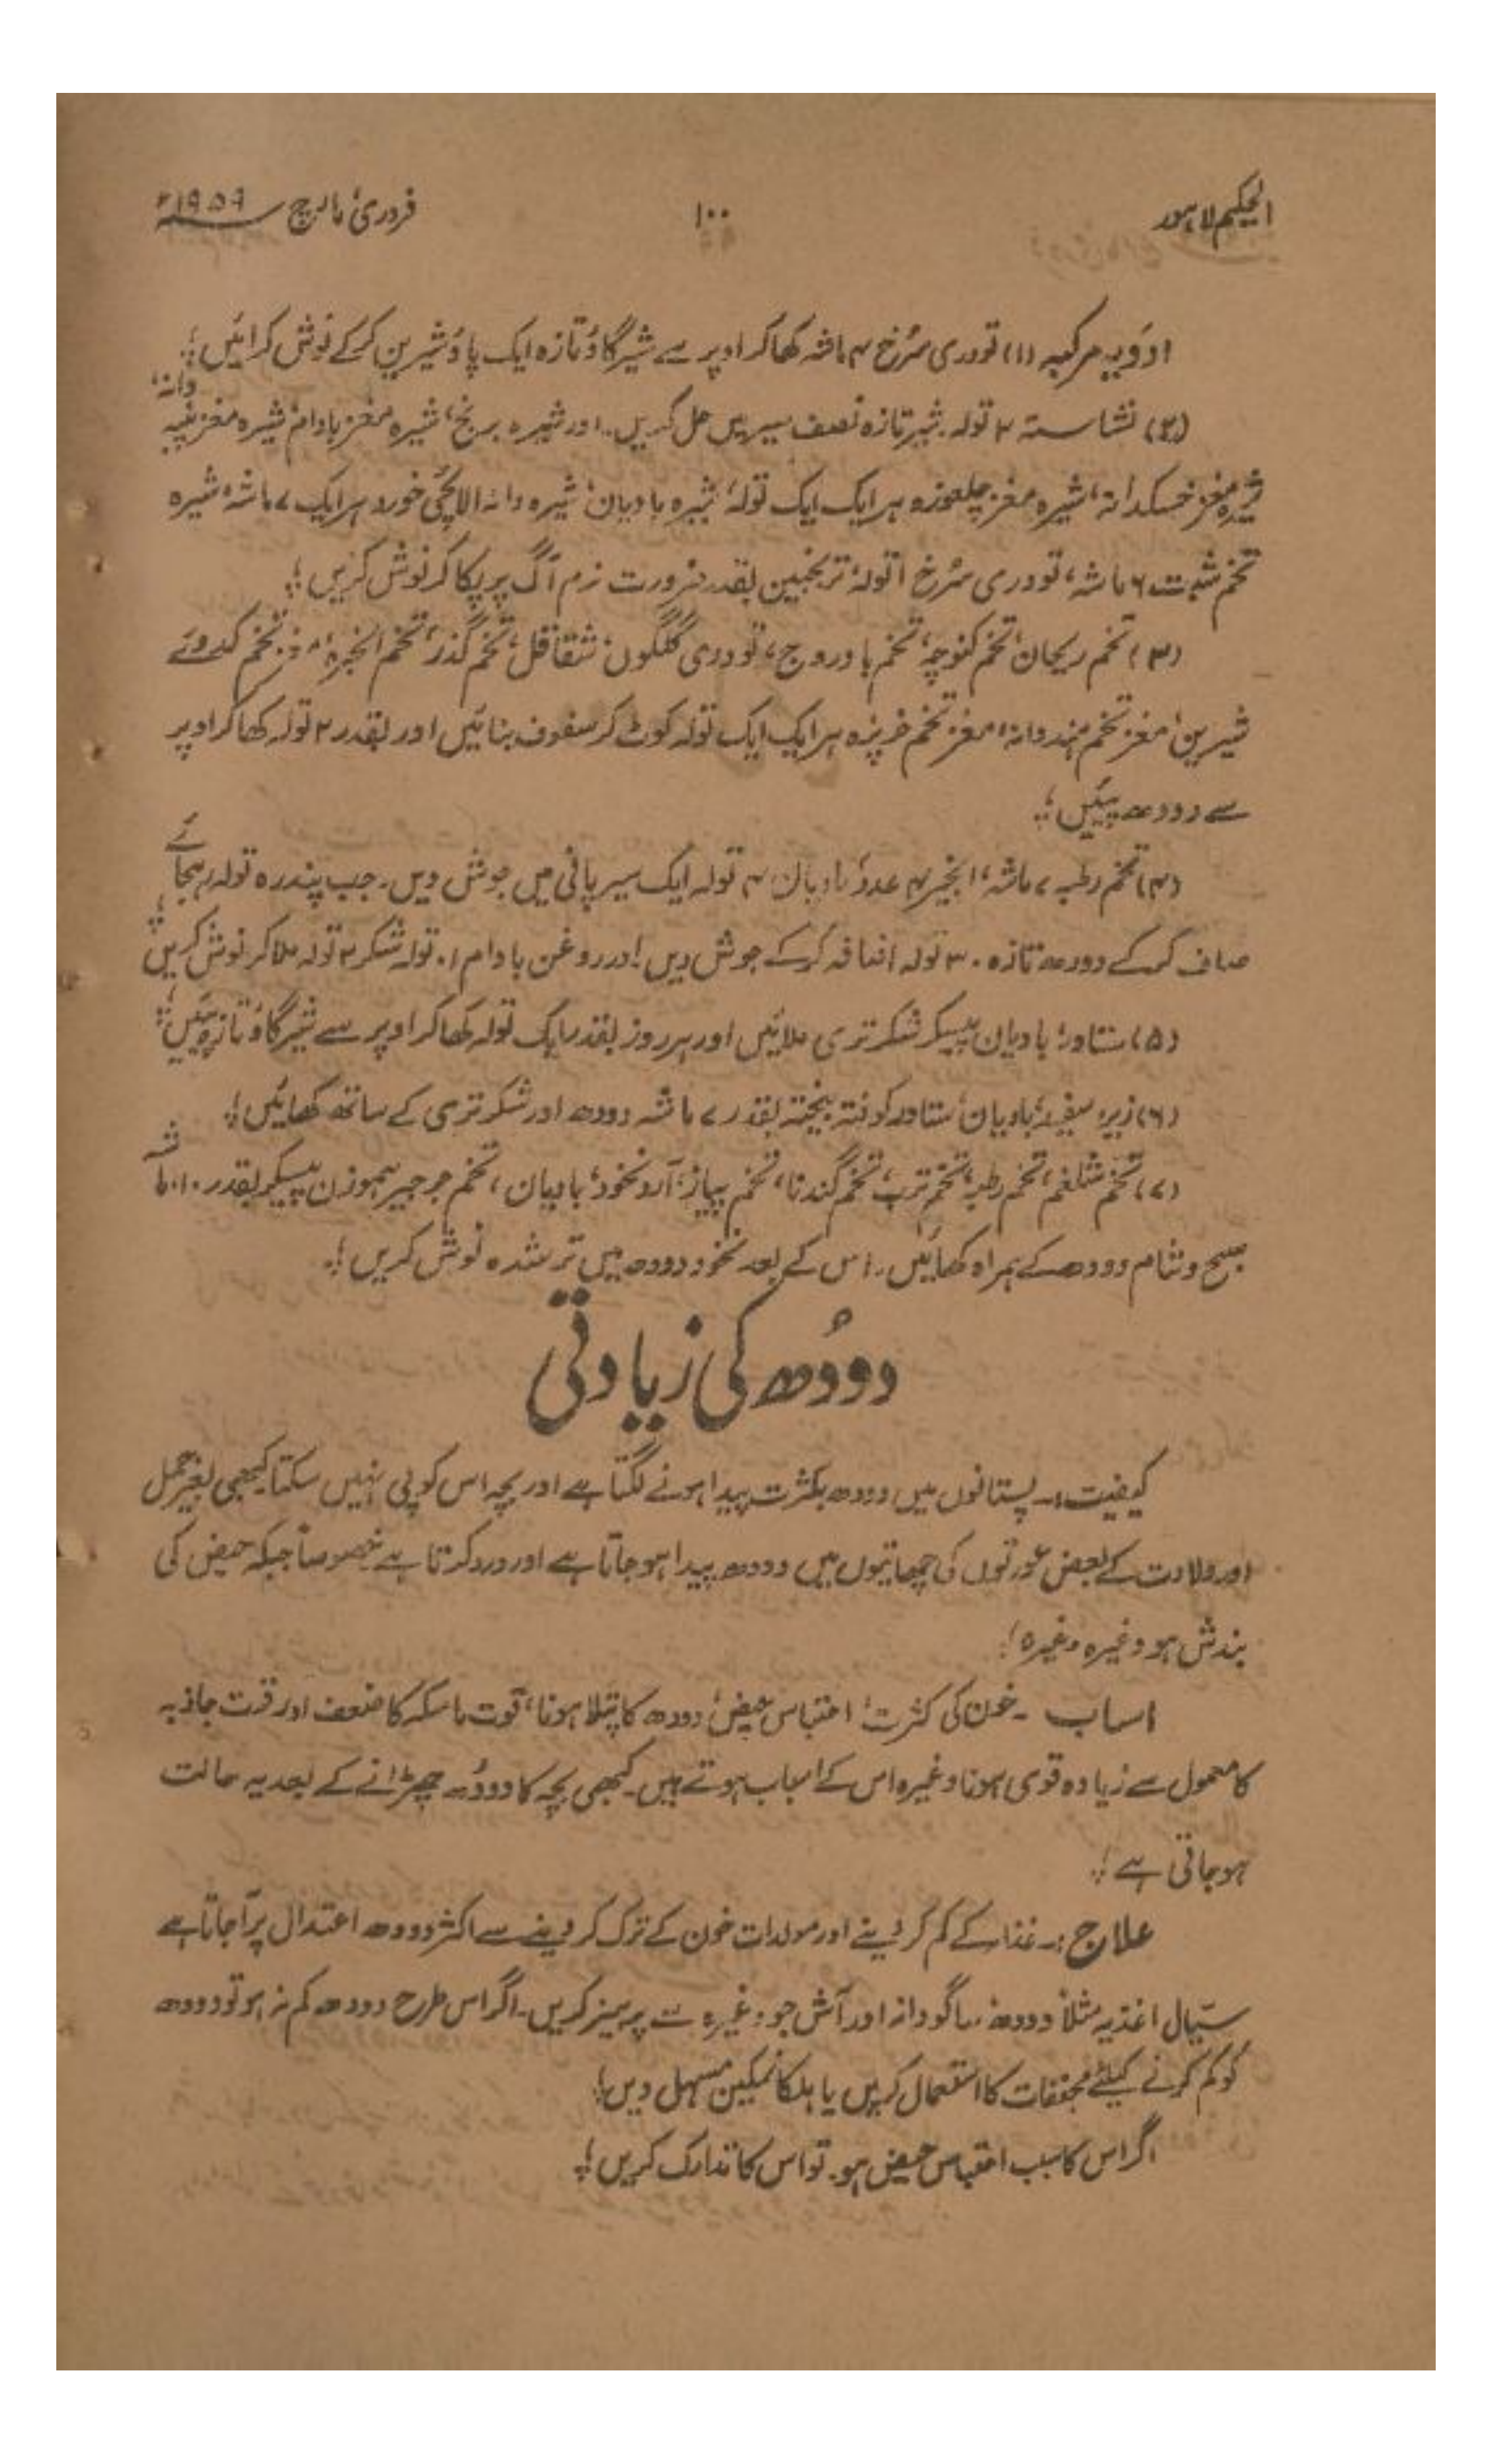 الحکیم لاہور ۱۰۰ فروری، مارچ ۱۹۵۹ء
ادویہ مرکبہ (۱) تودری سُرخ ۴ ماشہ کھا کر اوپر سے شیرگاؤ تازہ ایک پاؤ شیرین کرکے نوش کرائیں؛
(۲) نشاستہ ۲ تولہ شیر تازہ نصف سیر میں حل کریں۔ اور شیرہ برنج، شیرہ مغز بادام، شیرہ مغز پنبہ دانہ،
شیرہ مغز خسکدانہ، شیرہ مغز چلغوزہ ہر ایک ایک تولہ، شیرہ بادیان، شیرہ دانہ الائچی خورد ہر ایک ۷ ماشہ، شیرہ
تخم شبت ۶ ماشہ، تودری سُرخ ۱ تولہ، ترنجبین بقدر ضرورت نرم آگ پر پکا کر نوش کریں؛
(۳) تخم ریحان، تخم کنوچہ، تخم بادروج، تودری گلگوں، شقاقل، تخم گذر، تخم انجرہ، مغز تخم کدوئے
شیریں، مغز تخم ہندوانہ، مغز تخم خرپزہ ہر ایک ایک تولہ کوٹ کر سفوف بنائیں اور بقدر ۲ تولہ کھا کر اوپر
سے دودھ پئیں؛
(۴) تخم رطبہ ۷ ماشہ، انجیر ۷ عدد، بادیان ۴ تولہ ایک سیر پانی میں جوش دیں۔ جب پندرہ تولہ رہجائے
صاف کرکے دودھ تازہ ۳۰ تولہ اضافہ کرکے جوش دیں اور روغن بادام ۱ تولہ شکر ۲ تولہ ملا کر نوش کریں؛
(۵) ستاور، بادیان پیسکر شکر تری ملائیں اور ہر روز بقدر ایک تولہ کھا کر اوپر سے شیرگاؤ تازہ پئیں؛
(۶) زیرہ سفید، بادیان، ستاور کوفتہ بیختہ بقدر ۷ ماشہ دودھ اور شکر تری کے ساتھ کھائیں؛
(۷) تخم شلغم، تخم رطبہ، تخم ترب، تخم گندنا، تخم پیاز، آرد نخود، بادیان، تخم جرجیر ہموزن پیسکر بقدر ۱۰ ماشہ
صبح و شام دودھ کے ہمراہ کھائیں۔ اس کے بعد نخود دودھ میں تر شدہ نوش کریں؛
دودُھ کی زیادتی
کیفیت:۔ پستانوں میں دودھ بکثرت پیدا ہونے لگتا ہے اور بچہ اس کو پی نہیں سکتا کبھی بغیر حمل
اور ولادت کے بعض عورتوں کی چھاتیوں میں دودھ پیدا ہو جاتا ہے اور درد کرتا ہے خصوصاً جبکہ حیض کی
بندش ہو وغیرہ وغیرہ؛
اسباب ۔ خون کی کثرت، احتباس حیض، دودھ کا پتلا ہونا، قوت ماسکہ کا ضعف اور قوت جاذبہ
کا معمول سے زیادہ قوی ہونا وغیرہ اس کے اسباب ہوتے ہیں۔ کبھی بچہ کا دودُھ چھڑانے کے بعد یہ حالت
ہو جاتی ہے؛
علاج:۔ غذا کے کم کر دینے اور مولدات خون کے ترک کر دینے سے اکثر دودھ اعتدال پر آ جاتا ہے
سیّال اغذیہ مثلاً دودھ، ساگودانہ اور آش جو، وغیرہ سے پرہیز کریں۔ اگر اس طرح دودھ کم نہ ہو تو دودھ
کو کم کرنے کیلئے مجففات کا استعمال کریں یا ہلکا نمکین مسہل دیں؛
اگر اس کا سبب احتباس حیض ہو۔ تو اس کا تدارک کریں؛